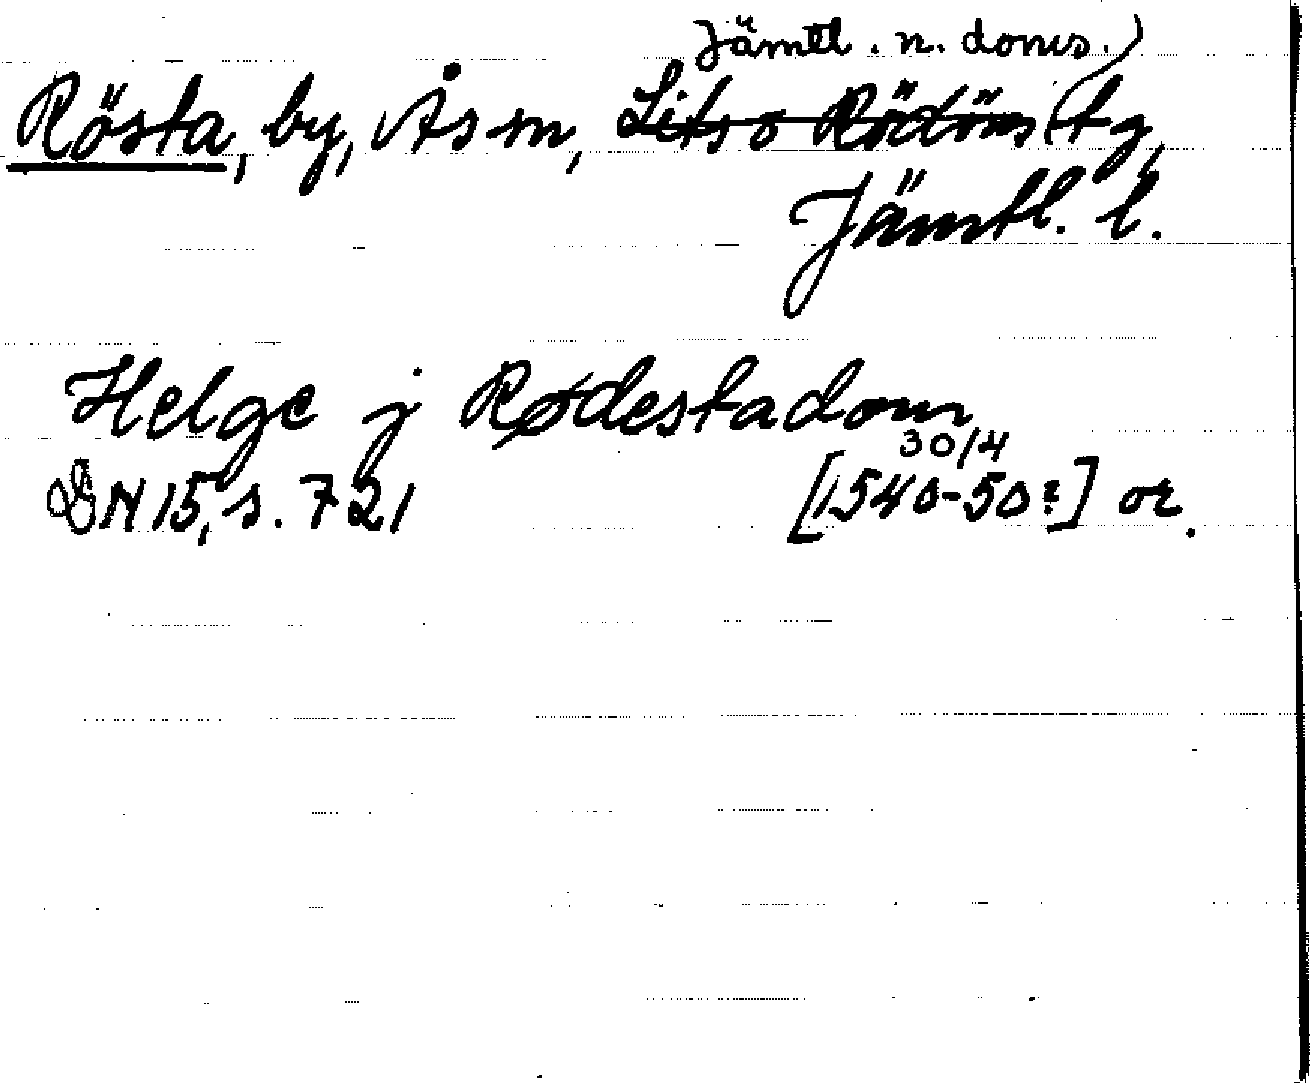 Jämtl. n. doms.
Rösta, by, Ås sn, Lits o Rödöns tg,
Jämtl. l.
Helge j Rødestadom
30/4
DN 15, s. 721 [1540-50?] or.